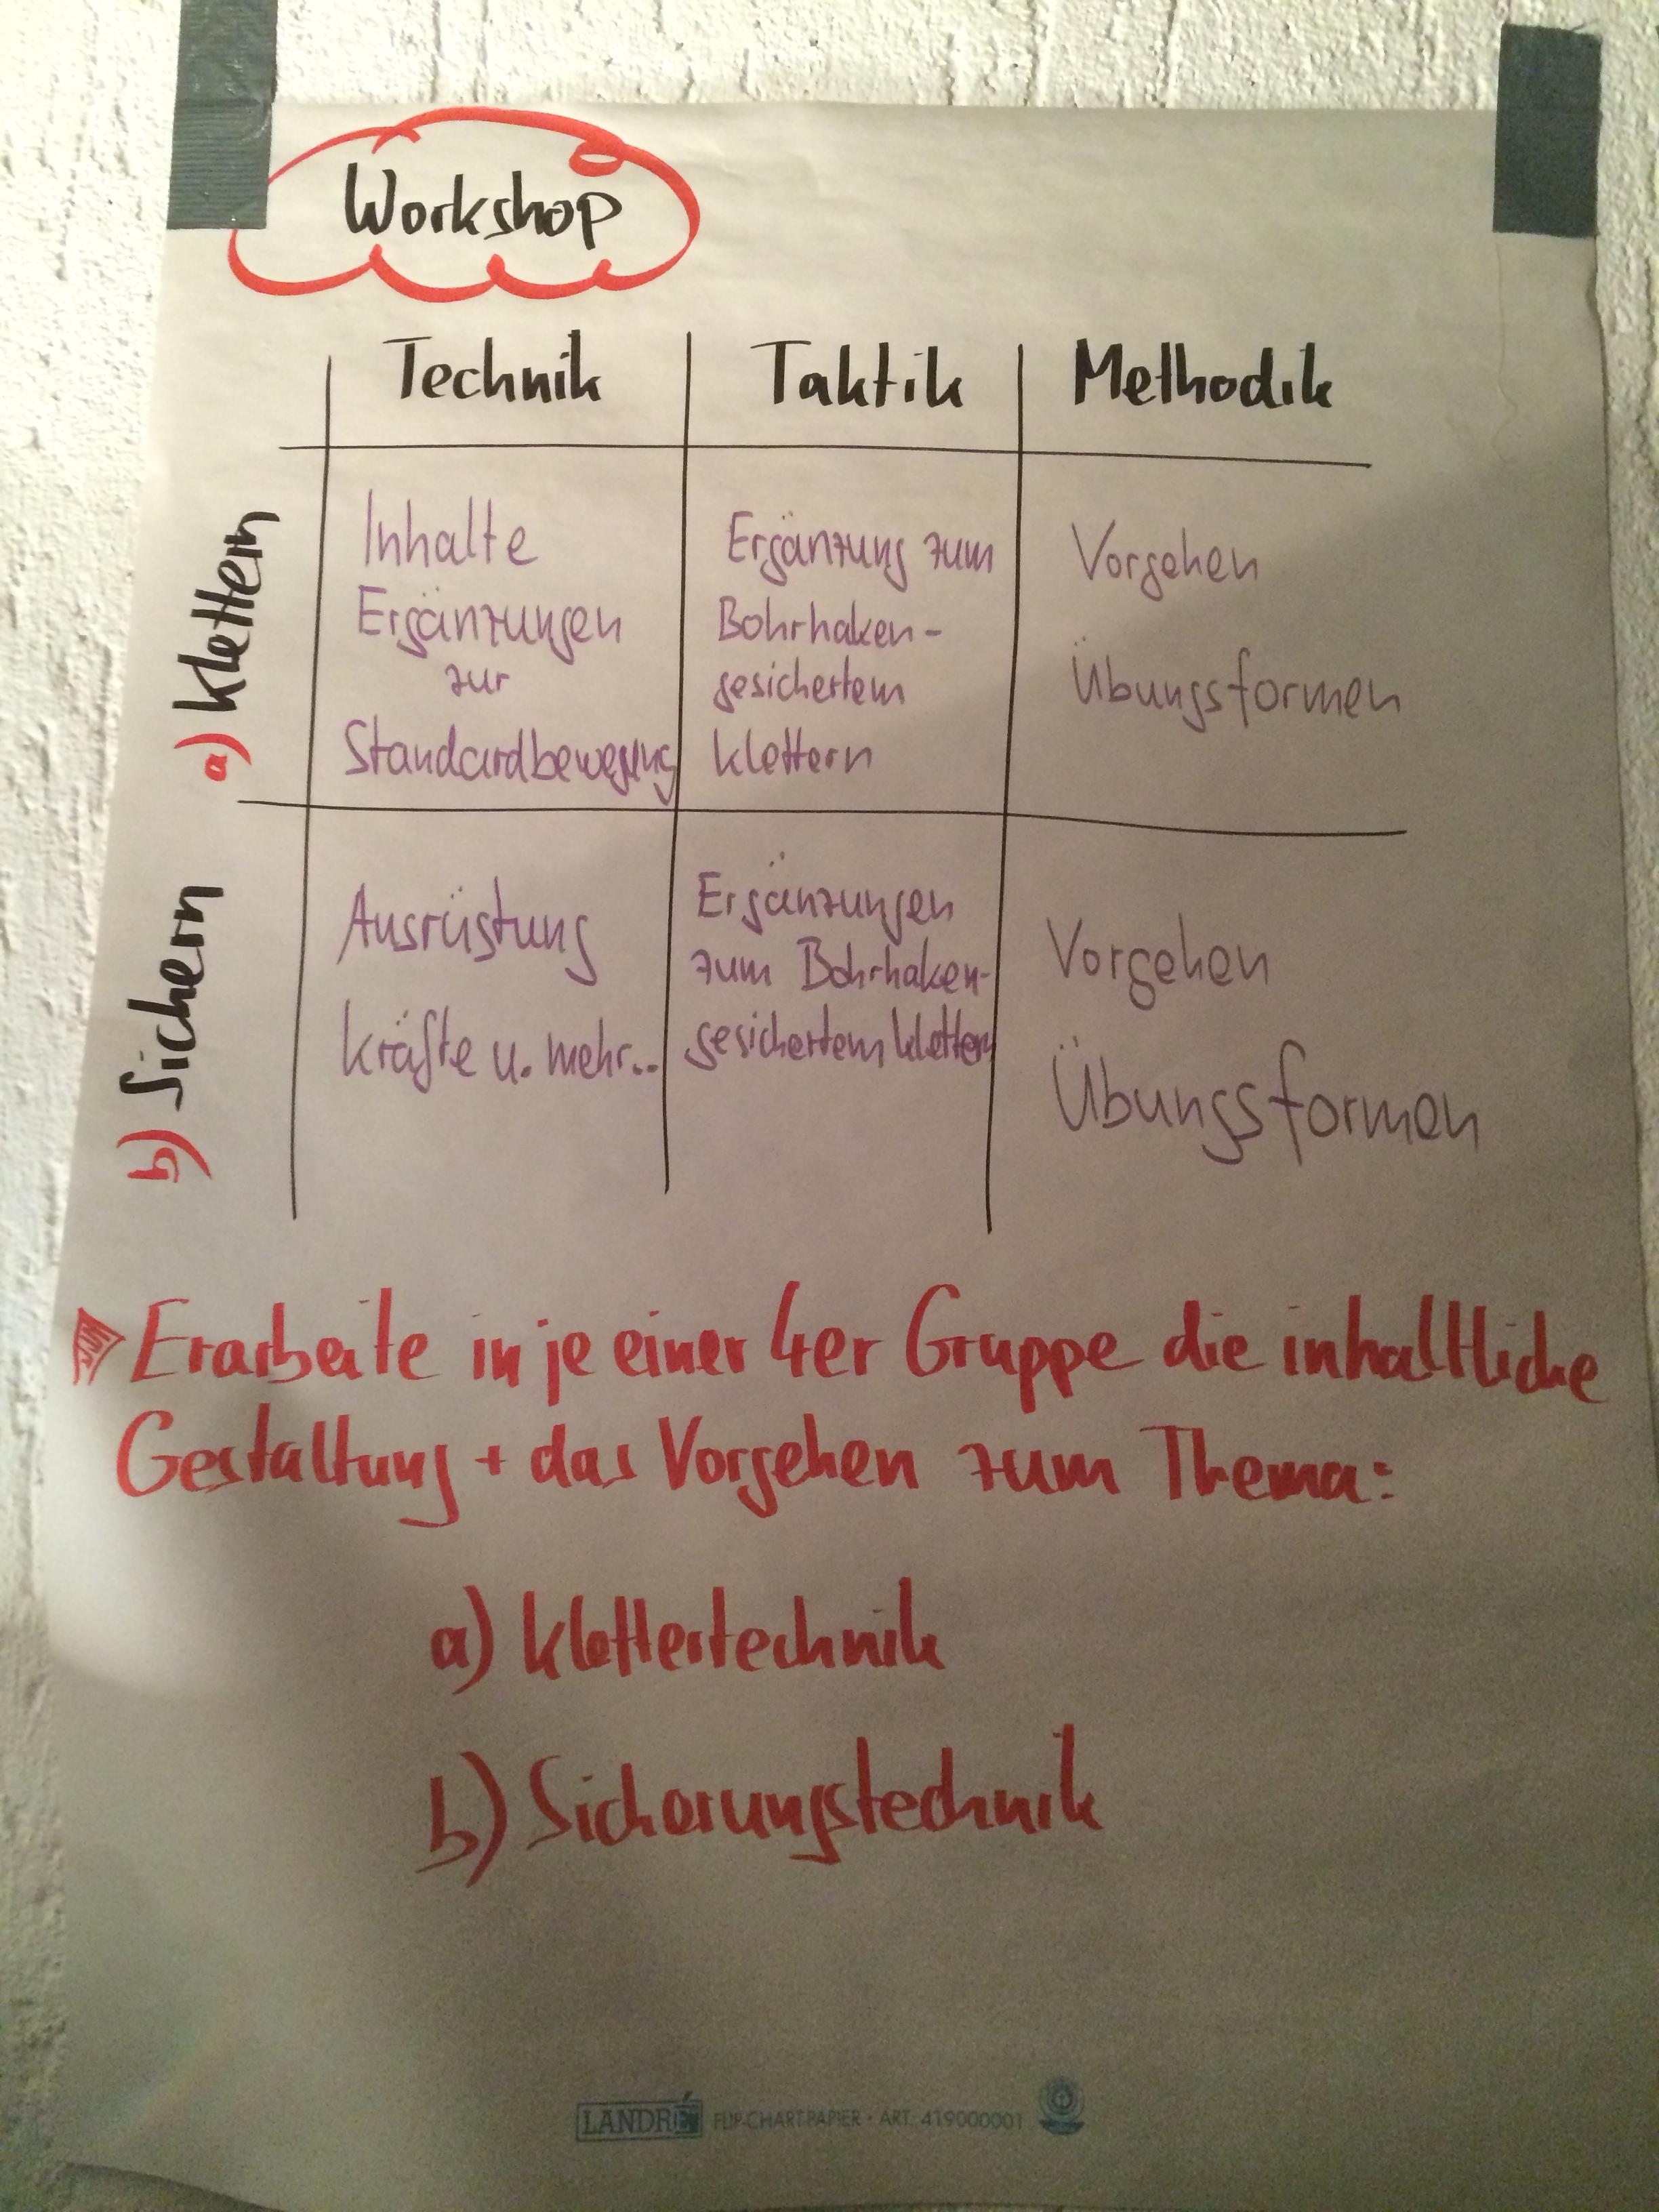 Workshop
Technik Taktik Methodik
a) Klettern
Inhalte
Ergänzungen
zur
Standardbewegung
Ergänzung zum
Bohrhaken-
gesichertem
Klettern
Vorgehen
Übungsformen
b) Sichern
Ausrüstung
Kräfte u. mehr..
Ergänzungen
zum Bohrhaken-
gesichertem Klettern
Vorgehen
Übungsformen
Erarbeite in je einer 4er Gruppe die inhaltliche
Gestaltung + das Vorgehen zum Thema:
a) Klettertechnik
b) Sicherungstechnik
LANDRÉ FLIP-CHART-PAPIER · ART. 419000001